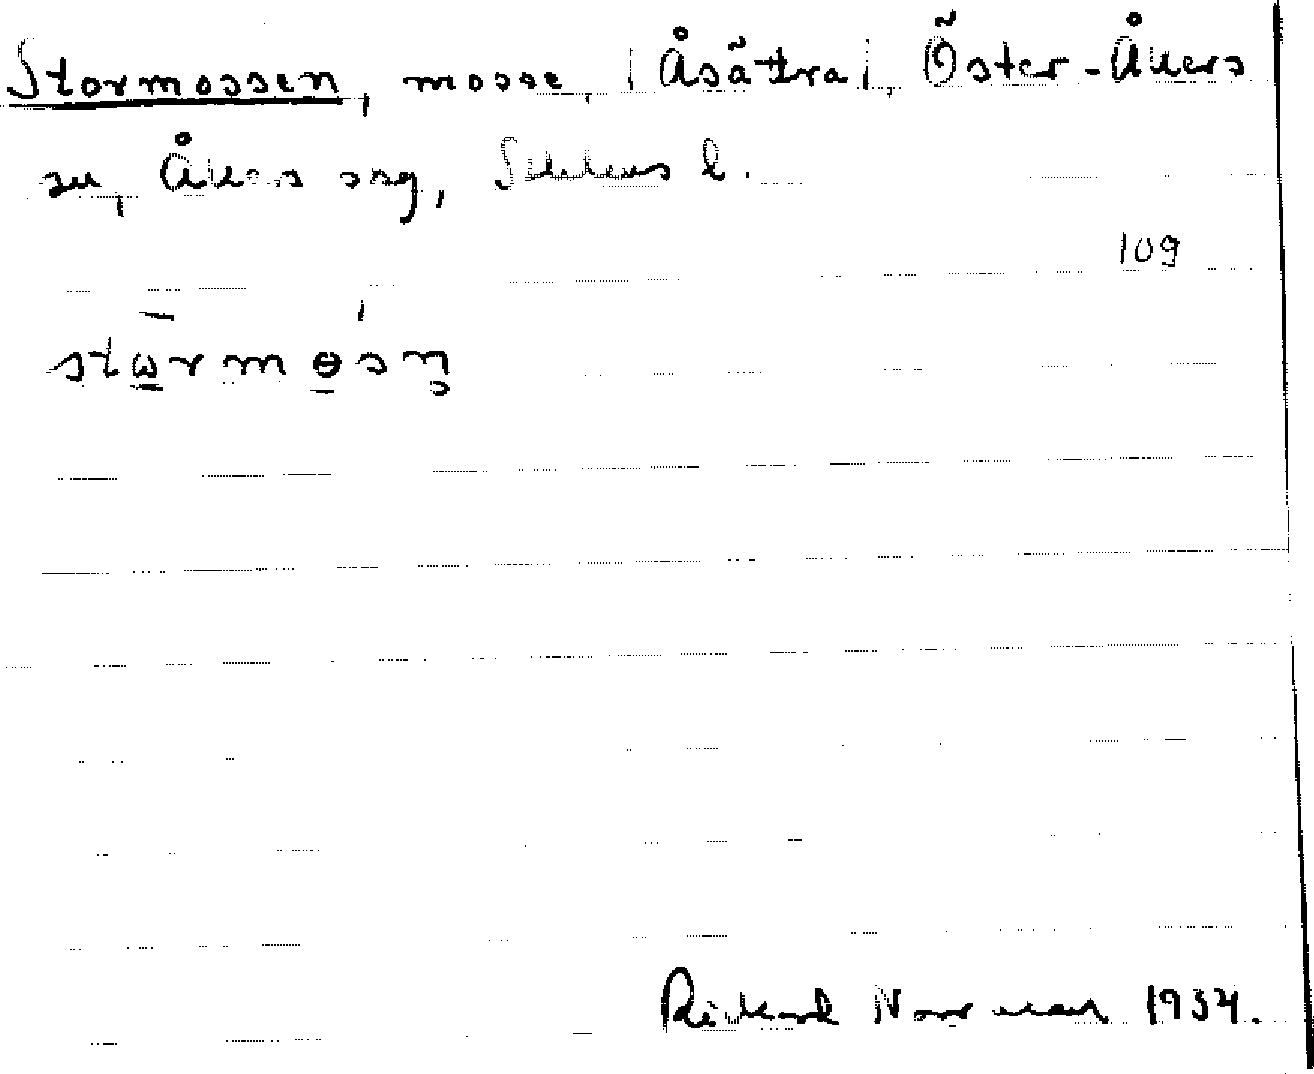 Stormossen, mosse, | Åsättra |, Öster-Åkers
sn, Åkers srg, Sthlms l.
109
stωrmɵsn̥
Rikard Norrman 1934.